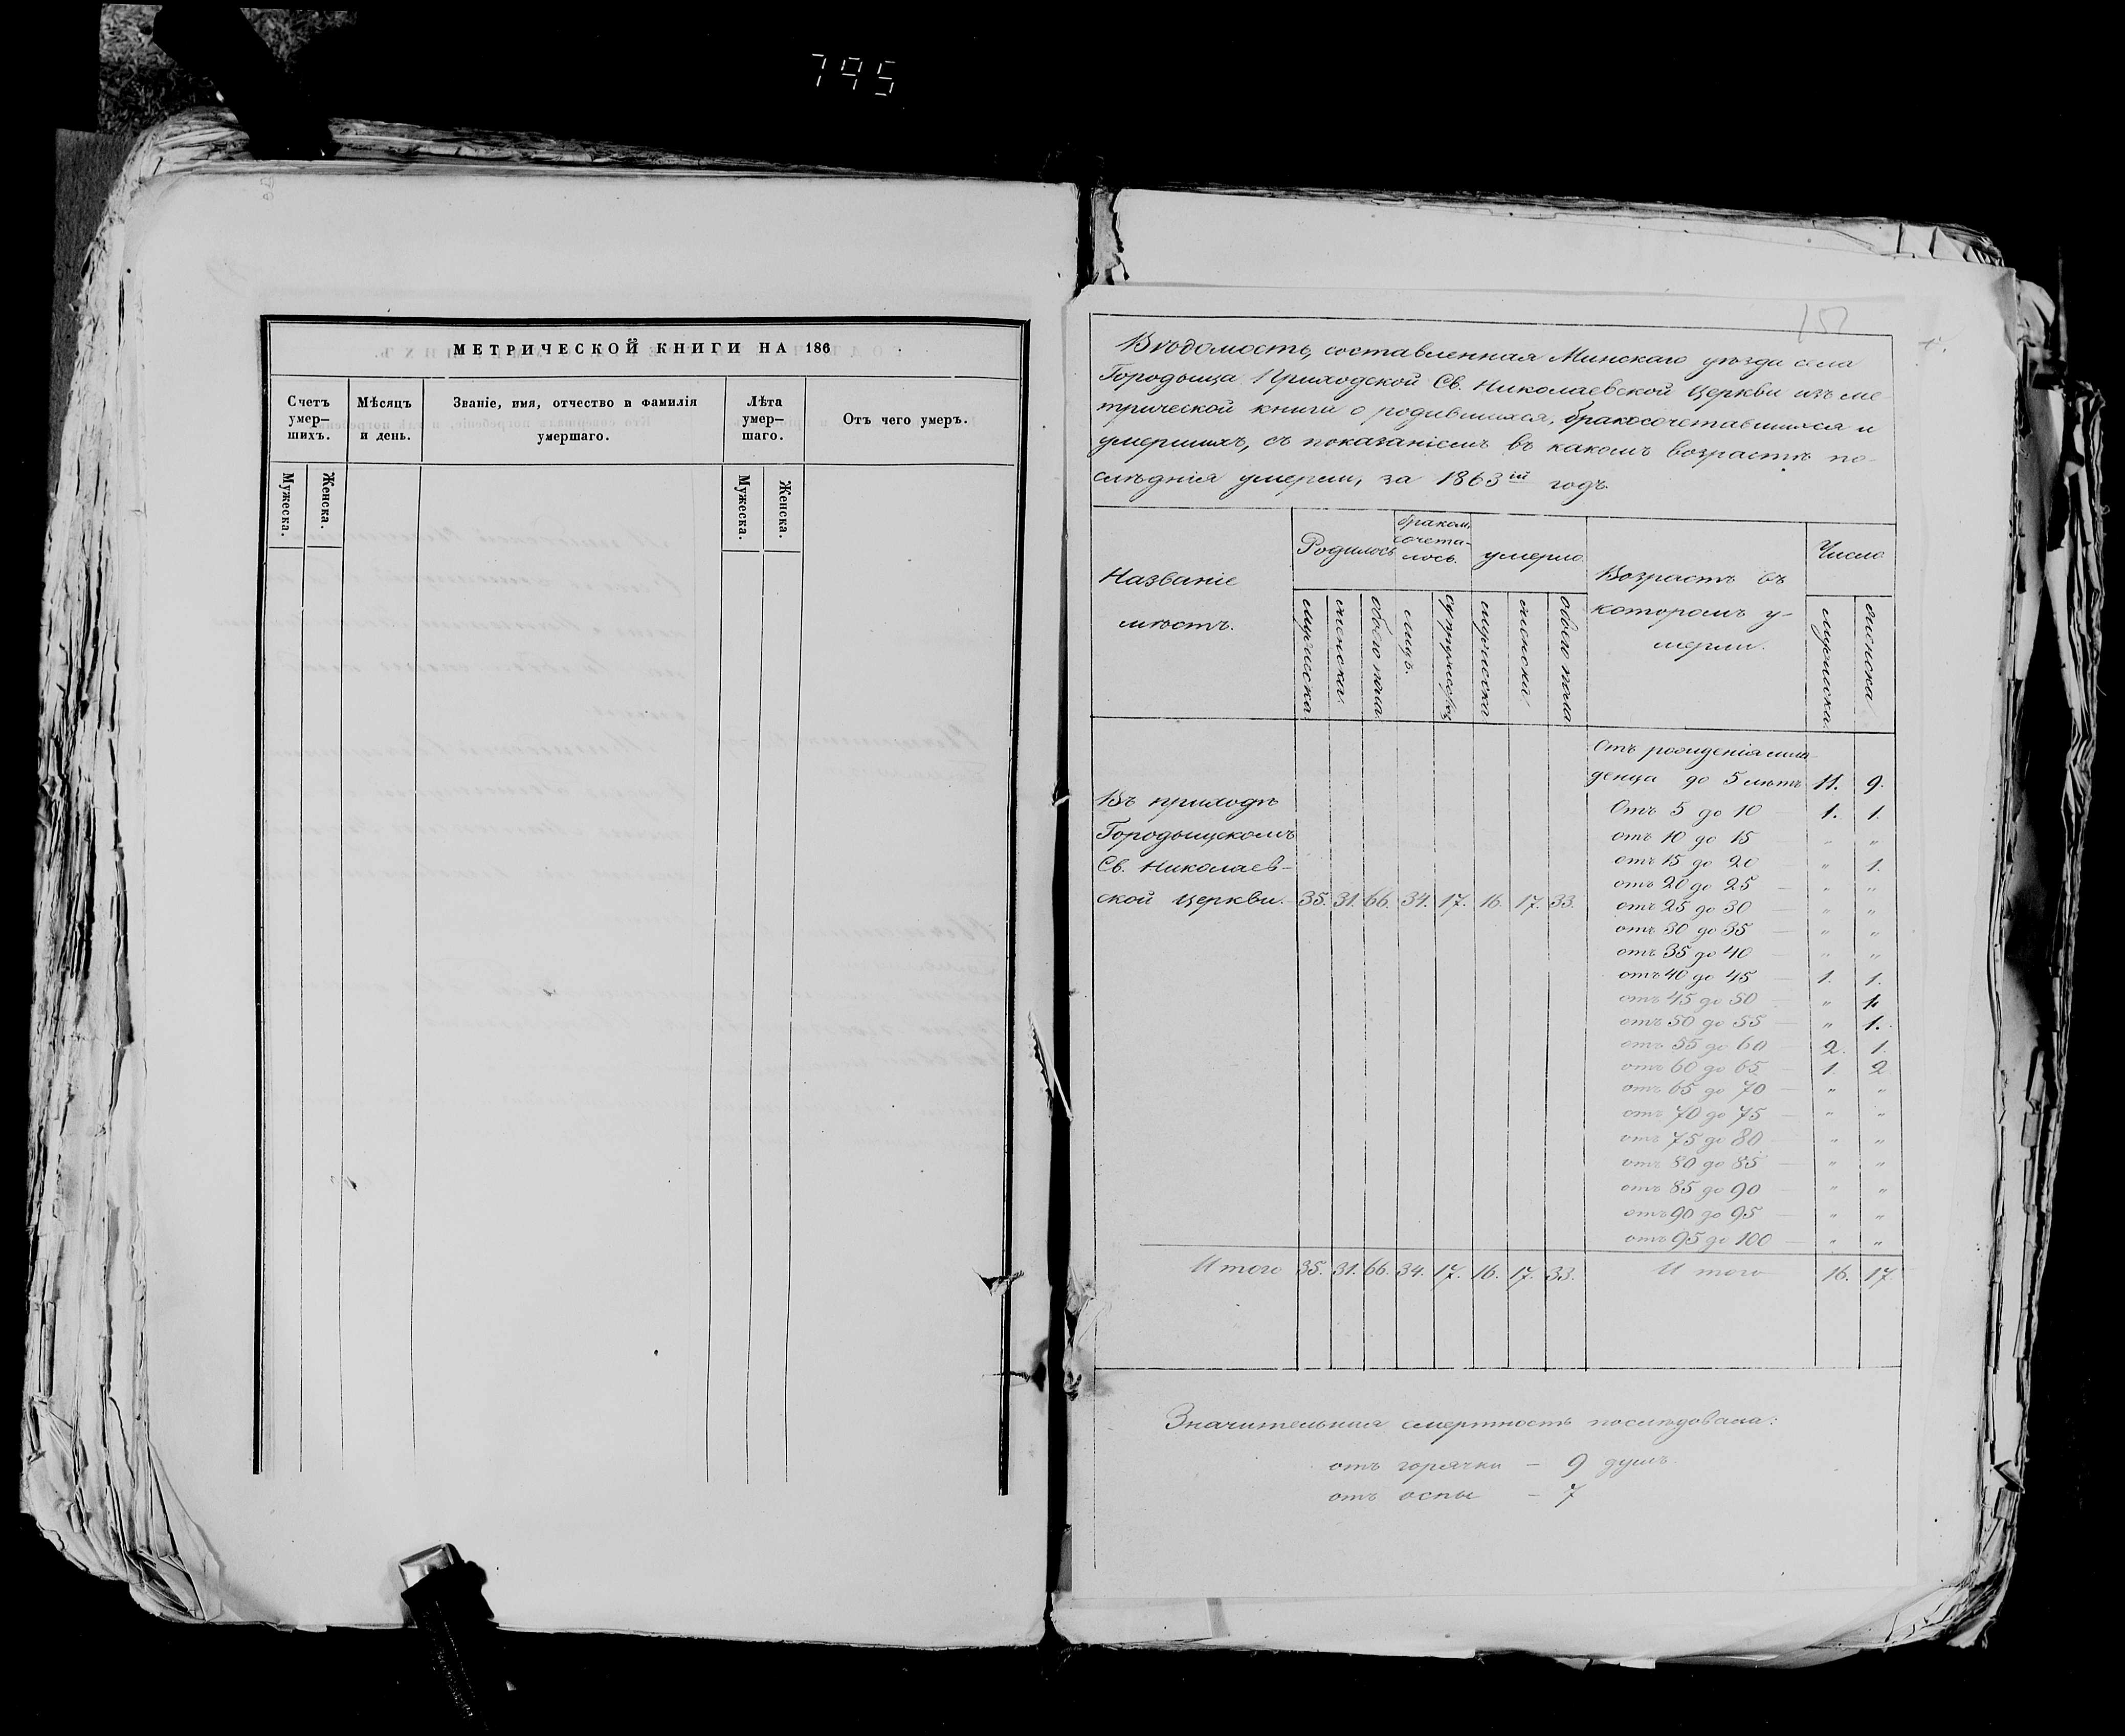 795
МЕТРИЧЕСКОЙ КНИГИ НА 186
Счетъ умер— шихъ.
Мѣсяцъ и день.
Званіе, имя, отчество и фамилія умершаго.
Лѣта умер— шаго.
Отъ чего умеръ.
Мужеска.
Женска.
Мужеска.
Женска.
Вѣдомость, составленная Минскаго уѣзда села
Городыща Приходской Св. Николаевской Церкви изъ ме-
трической книги о родившихся, бракосочетавшихся и
умершихъ, съ показаніемъ въ какомъ возрастѣ по-
слѣднія умерли, за 1863ій годъ.
Названіе мѣстъ.
Родилось
браком. сочета- лось.
умерло
Возрастъ въ которомъ у- мерли.
Число
мужеска
женска
обоего пола
лицъ.
супружествъ
мужеска
женска
обоего пола
мужеска
женска
Отъ рожденія мла-
денца до 5 лѣтъ 11. 9.
Въ приходѣ
Городыщскомъ
Св. Николаев-
ской Церкви. 35. 31. 66. 34. 17. 16. 17. 33.
Отъ 5 до 10 — 1. 1.
отъ 10 до 15 — „ „
отъ 15 до 20 — „ 1.
отъ 20 до 25 — „ „
отъ 25 до 30 — „ „
отъ 30 до 35 — „ „
отъ 35 до 40 — „ „
отъ 40 до 45 — 1. 1.
отъ 45 до 50 — „ 1.
отъ 50 до 55 — „ 1.
отъ 55 до 60 — 2. 1.
отъ 60 до 65 — 1. 2
отъ 65 до 70 — „ „
отъ 70 до 75 — „ „
отъ 75 до 80 — „ „
отъ 80 до 85 — „ „
отъ 85 до 90 — „ „
отъ 90 до 95 — „ „
отъ 95 до 100 — „ „
Итого 35. 31. 66. 34. 17. 16. 17. 33. Итого 16. 17.
Значительная смертность послѣдовала:
отъ горячки — 9 душъ.
отъ оспы — 7